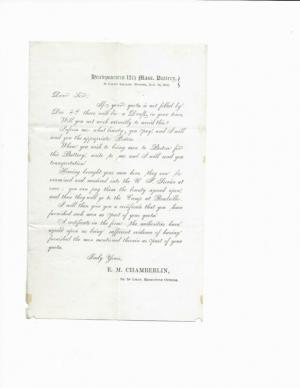 Headquarters 12th Mass. Battery,
Dear Sir:
If your quota is not filled by
Dec. 4th there will be a Draft, in your town.
Will you not work earnestly to avoid this?
Inform me what bounty you pay, and I will
send you the appropriate Posters.
When you wish to bring men to Boston for
this Battery, write to me and I will send you
transportation.
Having brought your men here, they are
examined and mustered into the U. S. Service at
once; you can pay them the bounty agreed upon,
and then they will go to the Camp at Readville.
I will then give you a certificate that you have
furnished such men as part of your quota.
A certificate in the form the authorities have
agreed upon as being sufficient evidence of having
furnished the men mentioned therein as part of your
quota.
Truly Yours,
E. M. CHAMBERLIN,
Recruiting Officer.